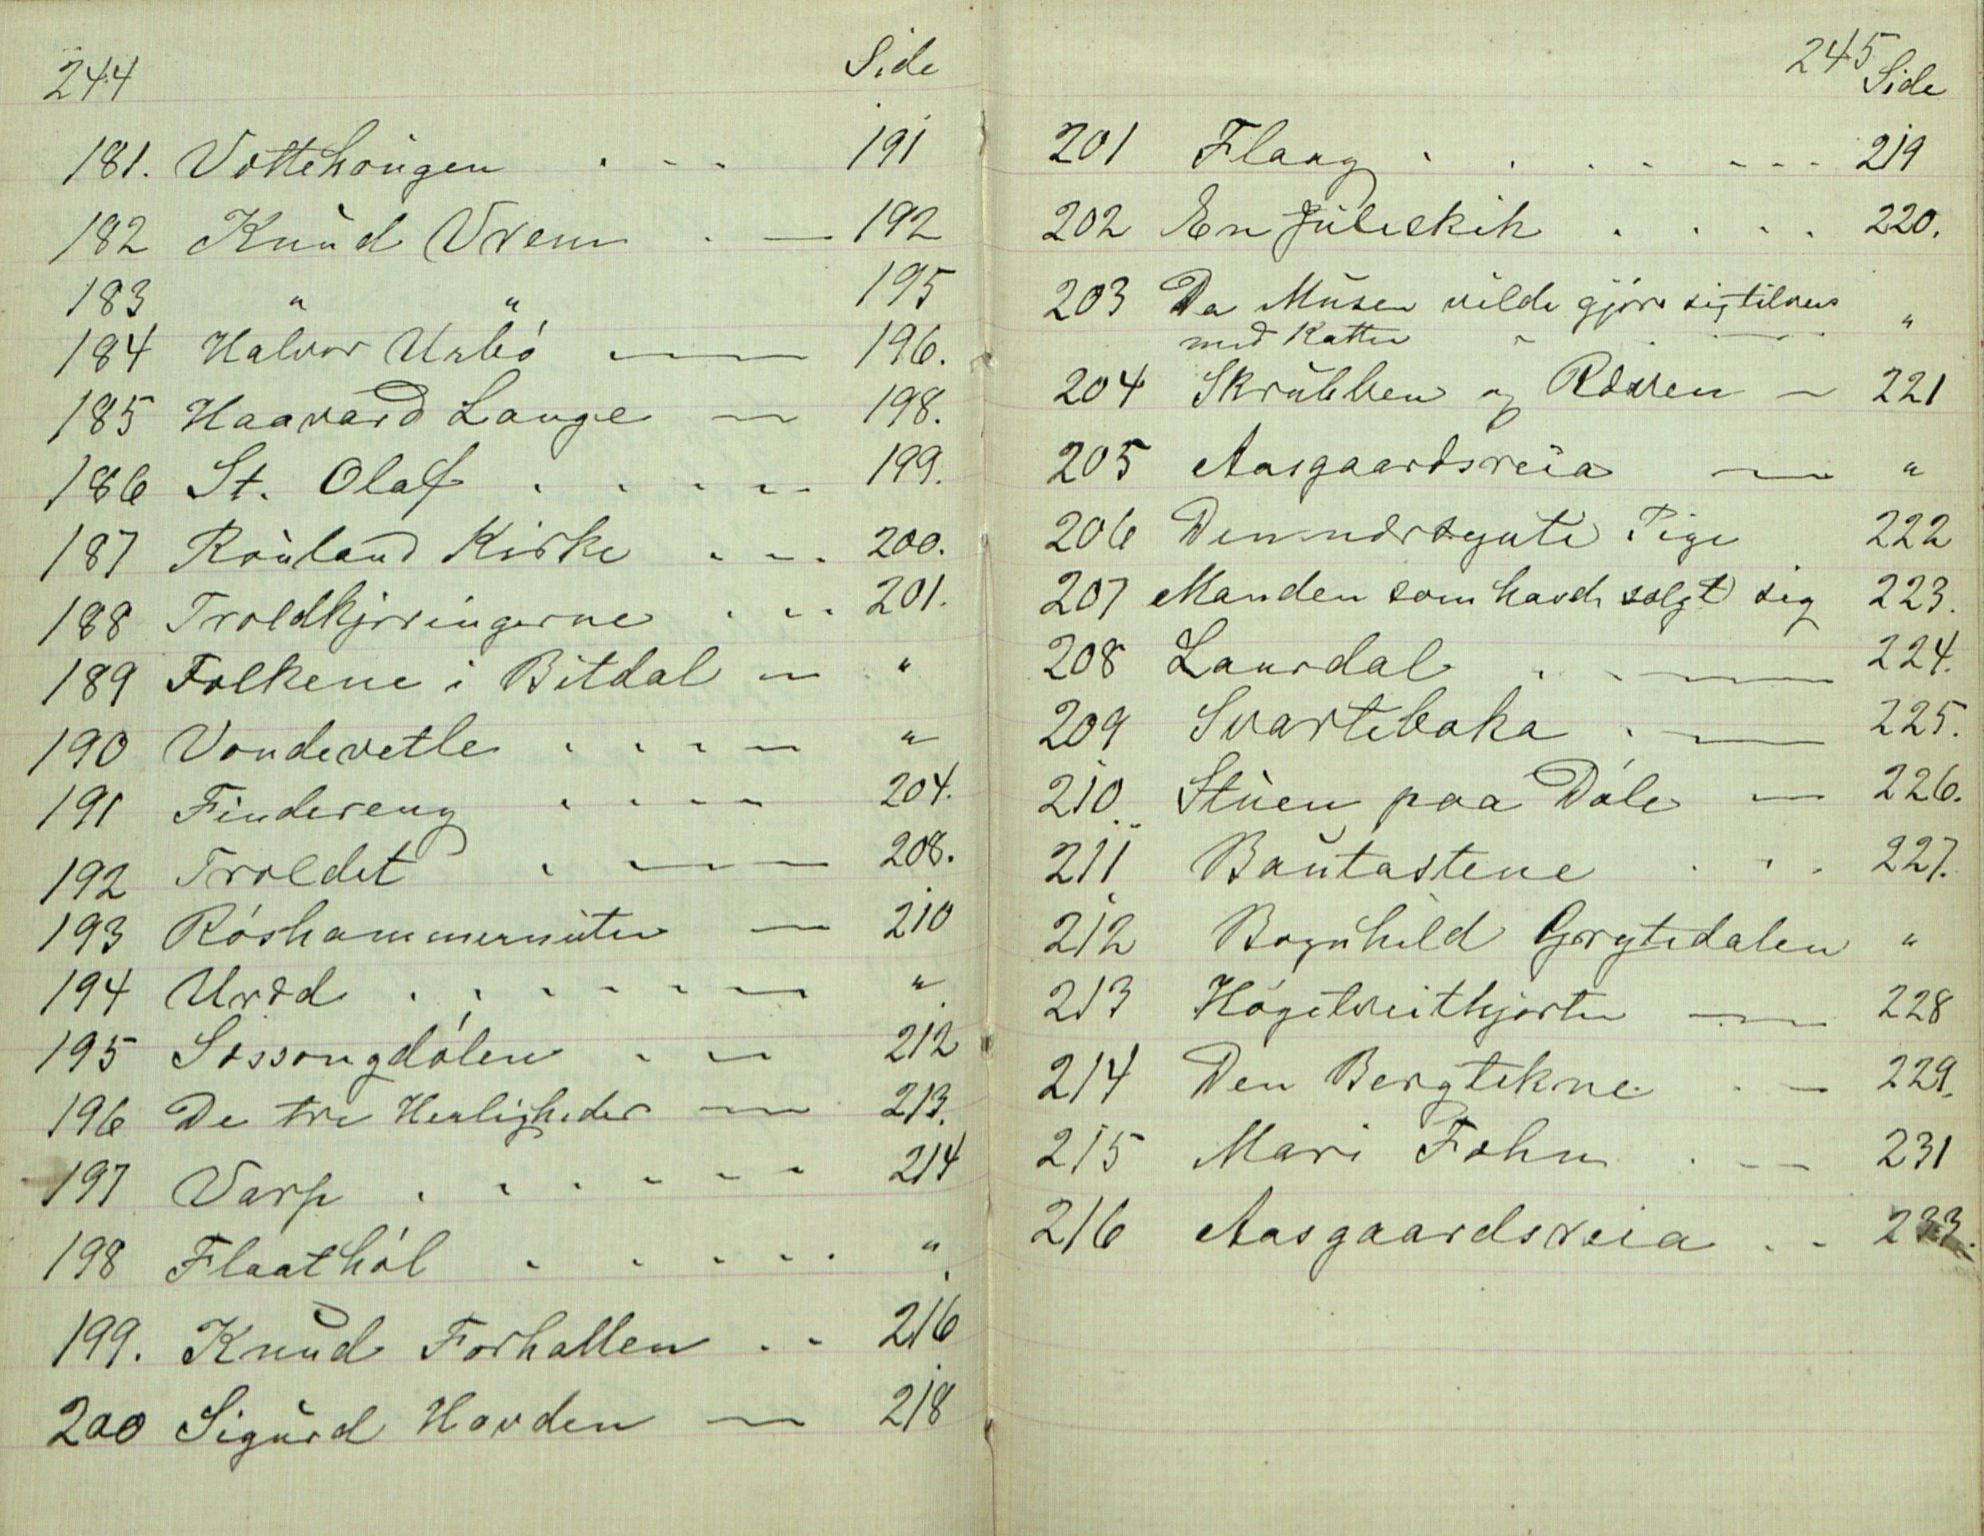 244 Side
181. Vottehougen . - - 191
182 Knud Vrem . — 192
183 " " 195
184 Halvor Urbö — 196.
185 Haavard Lauge — 198.
186 St. Olaf . . . . . 199.
187 Rouland Kirke . - . 200.
188 Troldkjæringerne . - - 201.
189 Folkene i Bitdal — "
190 Vondevetle . . . — "
191 Findereng . . . — 204.
192 Troldet . — 208.
193 Röshammernuten — 210
194 Uræd . . . . . — "
195 Sossongdölen . — 212
196 De tre Herligheder — 213.
197 Varp . . . . - - 214
198 Flaathöl . . . . . "
199. Knud Forhallen . - 216
200 Sigurd Hovden — 218
245 Side
201 Flaag . . . . - - - 219
202 En Juleskik . . . . 220.
203 Da Musen vilde gjöre sig tilvens "
med Katten - . — .
204 Skrubben og Ræven — 221
205 Aasgaardsreia — "
206 Den nærsynte Pige 222
207 Manden som havde solgt sig 223.
208 Laurdal . . — 224.
209 Svarteboka . — 225.
210. Stuen paa Döle — 226.
211 Bautastene . . . 227.
212 Bognhild Grytedalen "
213 Högetveithjorten — 228
214 Den Bergtekne . — 229.
215 Mari Fohn . — 231
216 Aasgaardsreia . - 233.